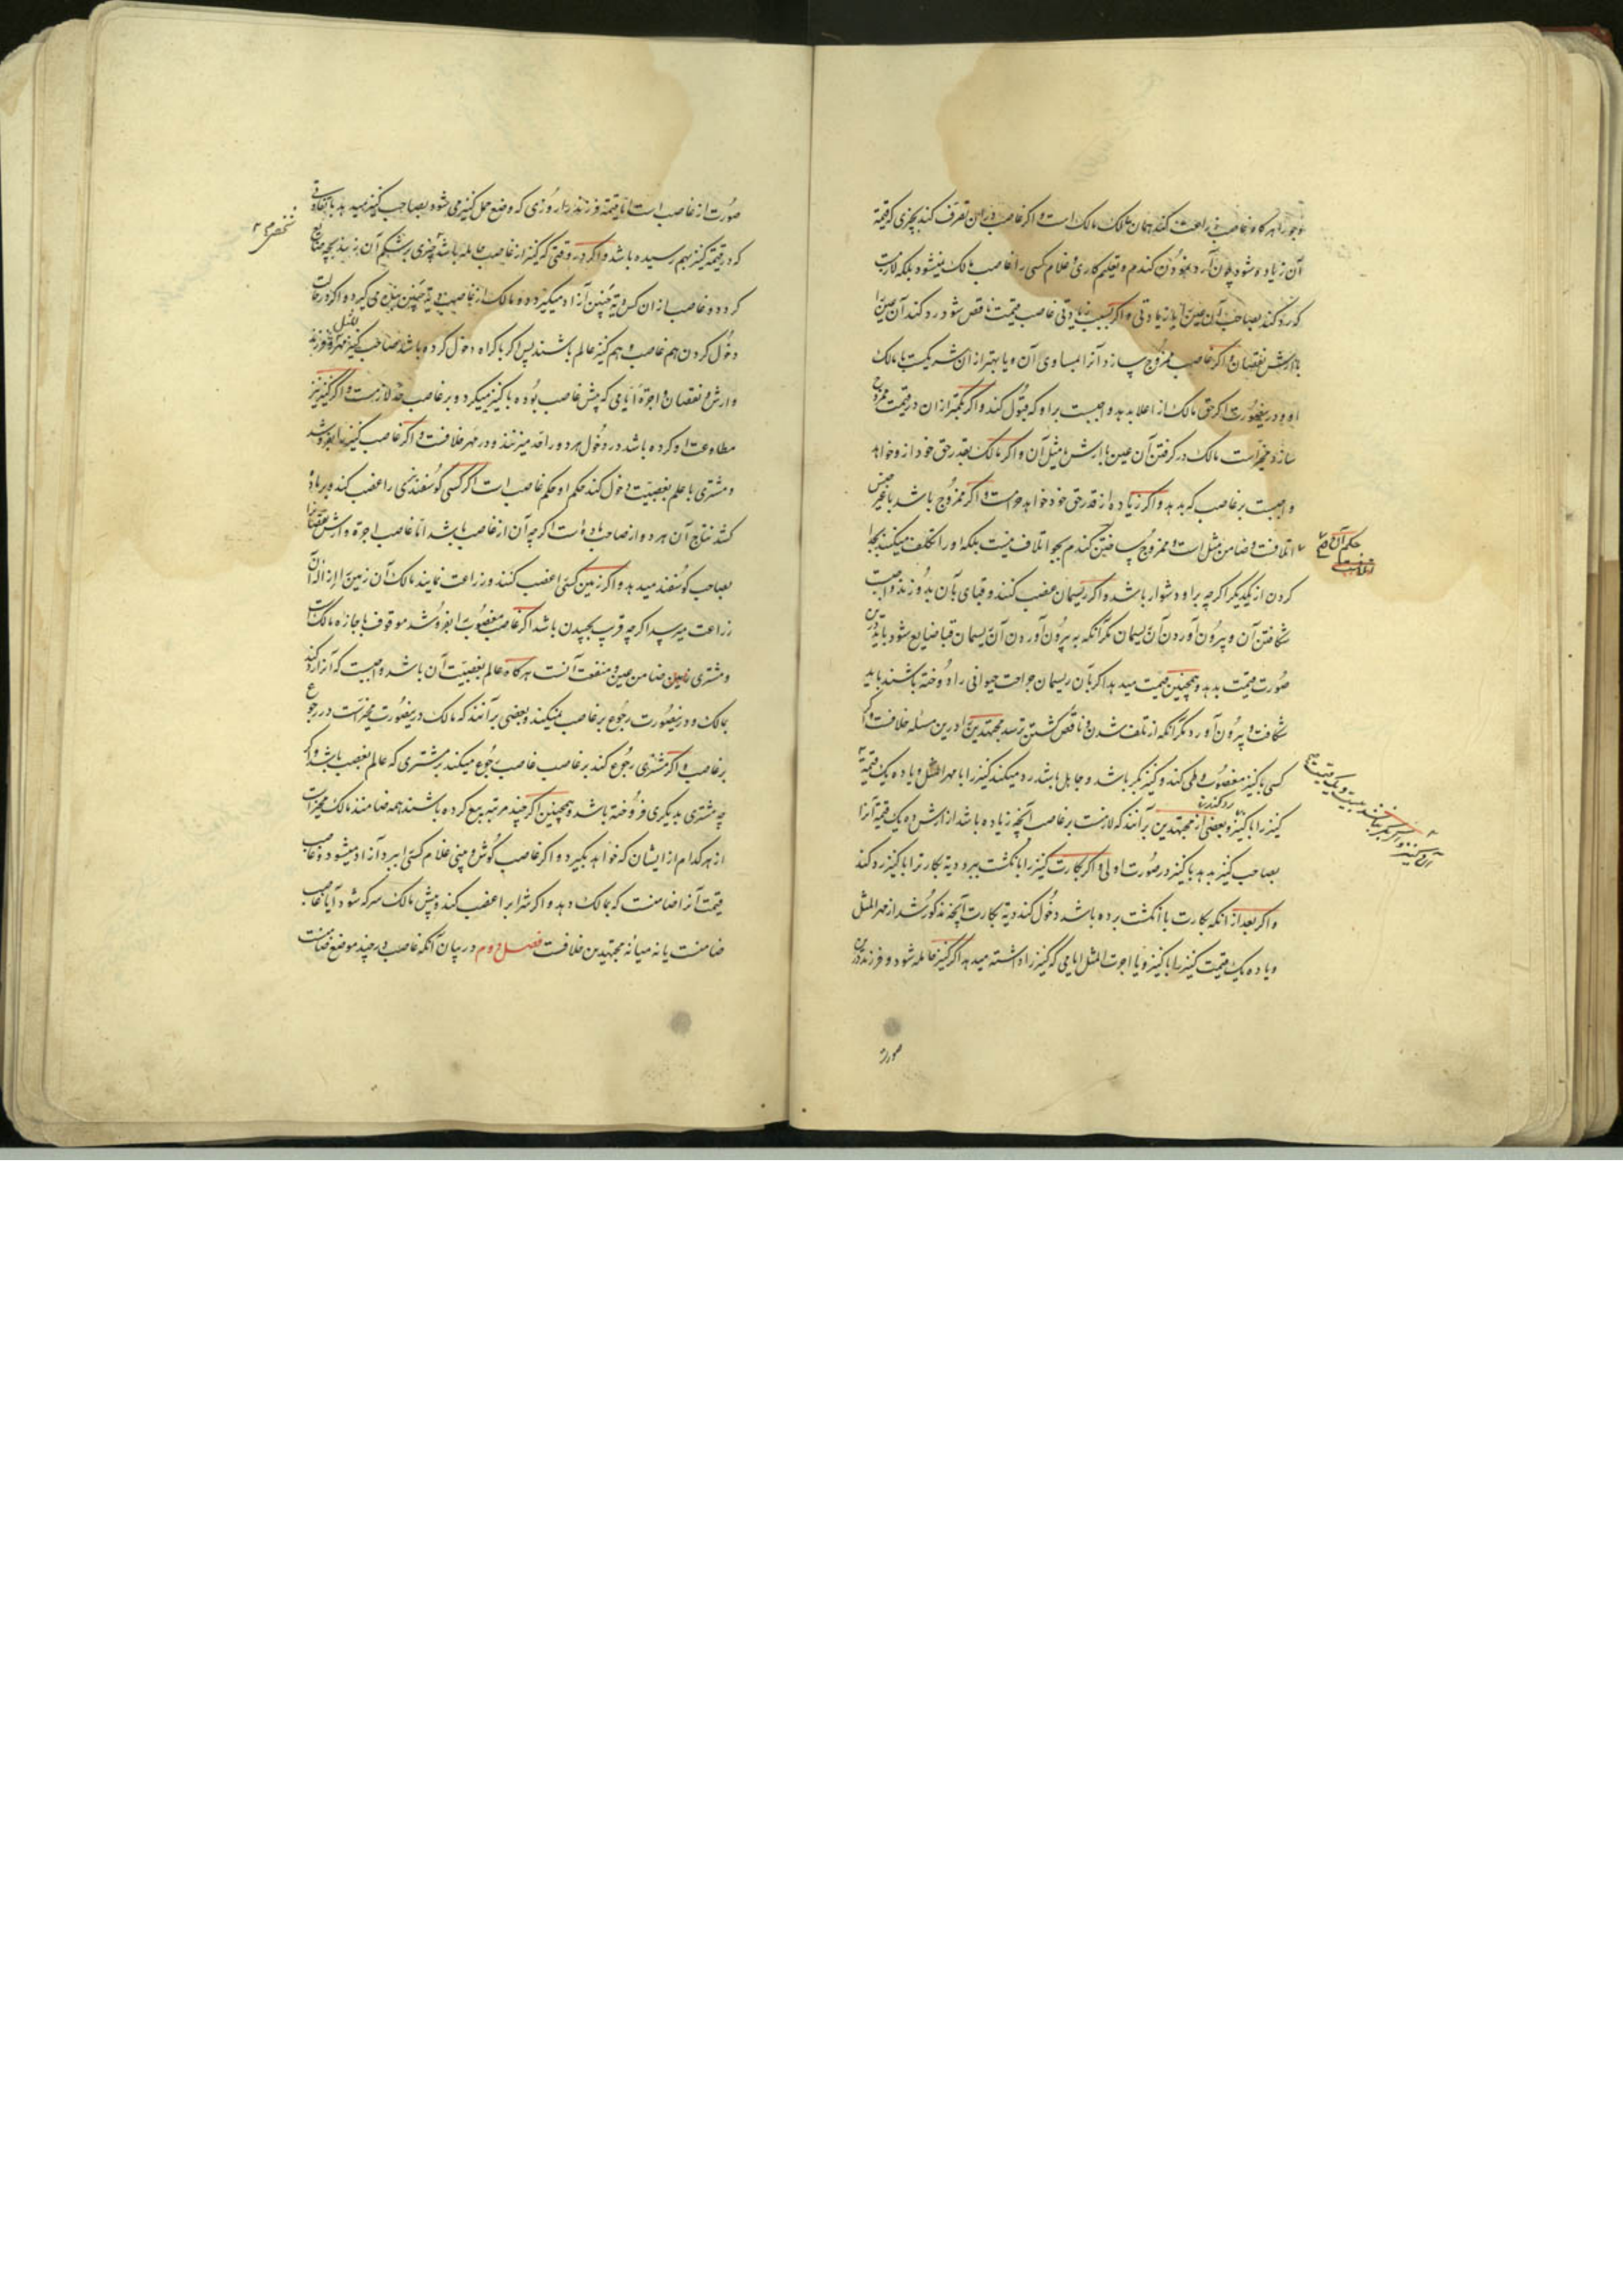 و جو را هرگاه غاصب زراعت کند همان مالک مالک است و اگر غاصب در این تصرف کند بچیزی که قیمة
آن زیاده شود چون آرد نمودن کندم و تعلیم کاری غلام کسی را غاصب مالک نمیشود بلکه لازمست
که رد کند بصاحب آن عین را با زیادتی و اگر بسبب زیادتی غاصب قیمت ناقص شود رد کند آن عین را
با ارش نقصان و اگر غاصب ممزوج سازد آنرا بمساوی آن و یا بهتر از ان شریکست با مالک
او و درینصورت اگر حق مالک از اعلا بدهد واجبست بر او که قبول کند و اگر بکمتر از ان در قیمت ممزوج
سازد مخیرست مالک در گرفتن آن عین با ارش یا مثل آن و اگر مالک بقدر حق خود ازو خواهد
واجبست بر غاصب که بدهد و اگر زیاده از قدر حق خود خواهد حرامست و اگر ممزوج باشد با غیر جنس
اتلافست و ضامن مثل است و ممزوج ساختن کندم بجو اتلاف نیست بلکه او را تکلیف میکنند بجدا
حکم آن
کردن از یکدیگر اگرچه بر او دشوار باشد و اگر ریسمان غصب کنند و قبای بآن بدوزند واجبست
شکافتن آن و بیرون آوردن آن ریسمان مگر آنکه به بیرون آوردن آن ریسمان قبا ضایع شود باید درین
صورت قیمت بدهد و همچنین قیمت میدهد اگر بآن ریسمان جراحت حیوانی را دوخته باشند باید
شکافت و بیرون آورد مگر آنکه از تلف شدن و ناقص گشتن ترسد مجتهدین را درین مسئله خلافست و اگر
کسی با کنیز مغصوب وطی کند و کنیز بکر باشد و جاهل باشد رد میکند کنیز را با مهر المثل و یا ده یک قیمة
کنیز را با کنیز و بعضی از مجتهدین بر آنند که لازمست بر غاصب آنچه زیاده باشد از ارش و ده یک قیمة آنرا
رد کند
بصاحب کنیز بدهد با کنیز در صورت اولی و اگر بکارت کنیز را بانکشت ببرد دیة بکارترا با کنیز رد کند
و اگر بعد از انکه بکارت با انکشت برده باشد دخول کند دیة بکارت آنچه مذکور شد از مهر المثل
و یا ده یک قیمت کنیز را با کنیز و یا اجرت المثل ایامی که کنیز را داشته میدهد اگر کنیز حامله شود و فرزند درین
صورة
صورت از غاصب است اما قیمة فرزند را روزی که وضع حمل کنیز می شود بصاحب کنیز میدهد با تفاوتی
که در قیمة کنیز بهم رسیده باشد و اگر در وقتی که کنیز از غاصب حامله باشد چیزی بر شکم آن زند بچه ضایع
گردد غاصب از ان کس دیة جنین آزاد میگیرد و مالک از غاصب دیة جنین بنده می گیرد و اگر در حالت
دخول کردن هم غاصب و هم کنیز عالم باشند پس اگر باکراه دخول کرده باشد صاحب کنیز مهر و فرزند
وارش و نقصان و اجرة ایامی که پیش غاصب بوده با کنیز میگیرد و بر غاصب حد لازمست و اگر کنیز نیز
مطاوعت او کرده باشد در دخول هر دو را حد میزنند و در مهر خلافست و اگر غاصب کنیز را بفروشد
و مشتری با علم بغصبیت دخول کند حکم او حکم غاصب است اگر کسی کوسفند نری را غصب کند و بر مادهٔ
کشد نتاج آن هر دو از صاحب ماده است اگرچه آن از غاصب باشد اما غاصب اجرة و ارش نقصانرا
بصاحب کوسفند میدهد و اگر زمین کسی را غصب کنند و زراعت نمایند مالک آن زمین را ازاله آن
زراعت میرسد اگرچه قریب بچیدن باشد اگر غاصب مغصوب را بفروشد موقوف باجازه مالکست
و مشتری ضامن عین و منفعت آنست هرگاه عالم بغصبیت آن باشد واجبست که آنرا رد کند
بمالک و درینصورت رجوع بر غاصب نمیکند و بعضی بر آنند که مالک درینصورت مخیرست در رجوع
بر غاصب و اگر مشتری رجوع کند بر غاصب غاصب رجوع میکند بر مشتری که عالم بغصب باشد و اگر
چه مشتری بدیگری فروخته باشد و همچنین اگر چند مرتبه بیع کرده باشند همه ضامنند مالک مخیرست
از هر کدام از ایشان که خواهد بگیرد و اگر غاصب کوش و بینی غلام کسی را ببرد آزاد میشود و غاصب
قیمت آنرا ضامنست که بمالک دهد و اگر شراب را غصب کند و پیش مالک سرکه شود آیا غاصب
ضامنست یا نه میانه مجتهدین خلافست فصل دوم در بیان آنکه غاصب در چند موضع ضامنست